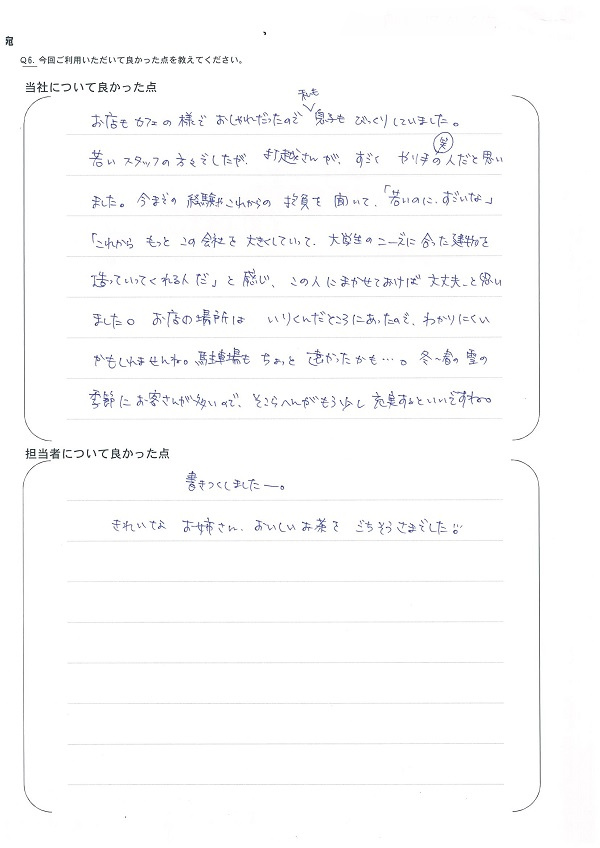 宛
Q6. 今回ご利用いただいて良かった点を教えてください。
当社について良かった点
私も
お店もカフェの様でおしゃれだったので 息子もびっくりしていました。
笑
若いスタッフの方々でしたが、お越さんが、すごく やり手の人だと思い
ました。今までの経験やこれからの抱負を聞いて、「若いのに、すごいな」
「これからもっとこの会社を大きくしていって、大学生のニーズに合った建物を
造っていってくれる人だ」と感じ、この人にまかせておけば大丈夫。と思い
ました。お店の場所は いりくんだところにあったので、わかりにくい
かもしれませんね。駐車場もちょっと遠かったかも…。冬〜春の雪の
季節にお客さんが多いので、そこらへんがもう少し充実するといいですね。
担当者について良かった点
書きつくしましたー。
きれいな お姉さん、おいしいお茶を ごちそうさまでした!!